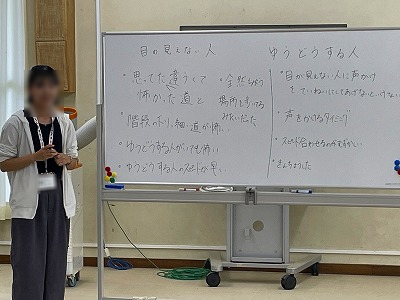 目の見えない人
・思ってた違うくて
怖かった 道と
・全然ちがう
場所を歩いてる
みたいだった
・階段の上り、細い道が怖い
・ゆうどうする人がいても怖い
・ゆうどうする人のスピードが早い
ゆうどうする人
・目が見えない人に声かけ
をていねいにしてあげないといけない
・声をかけるタイミング
・スピード合わせるのがむずかしい
・きんちょうした